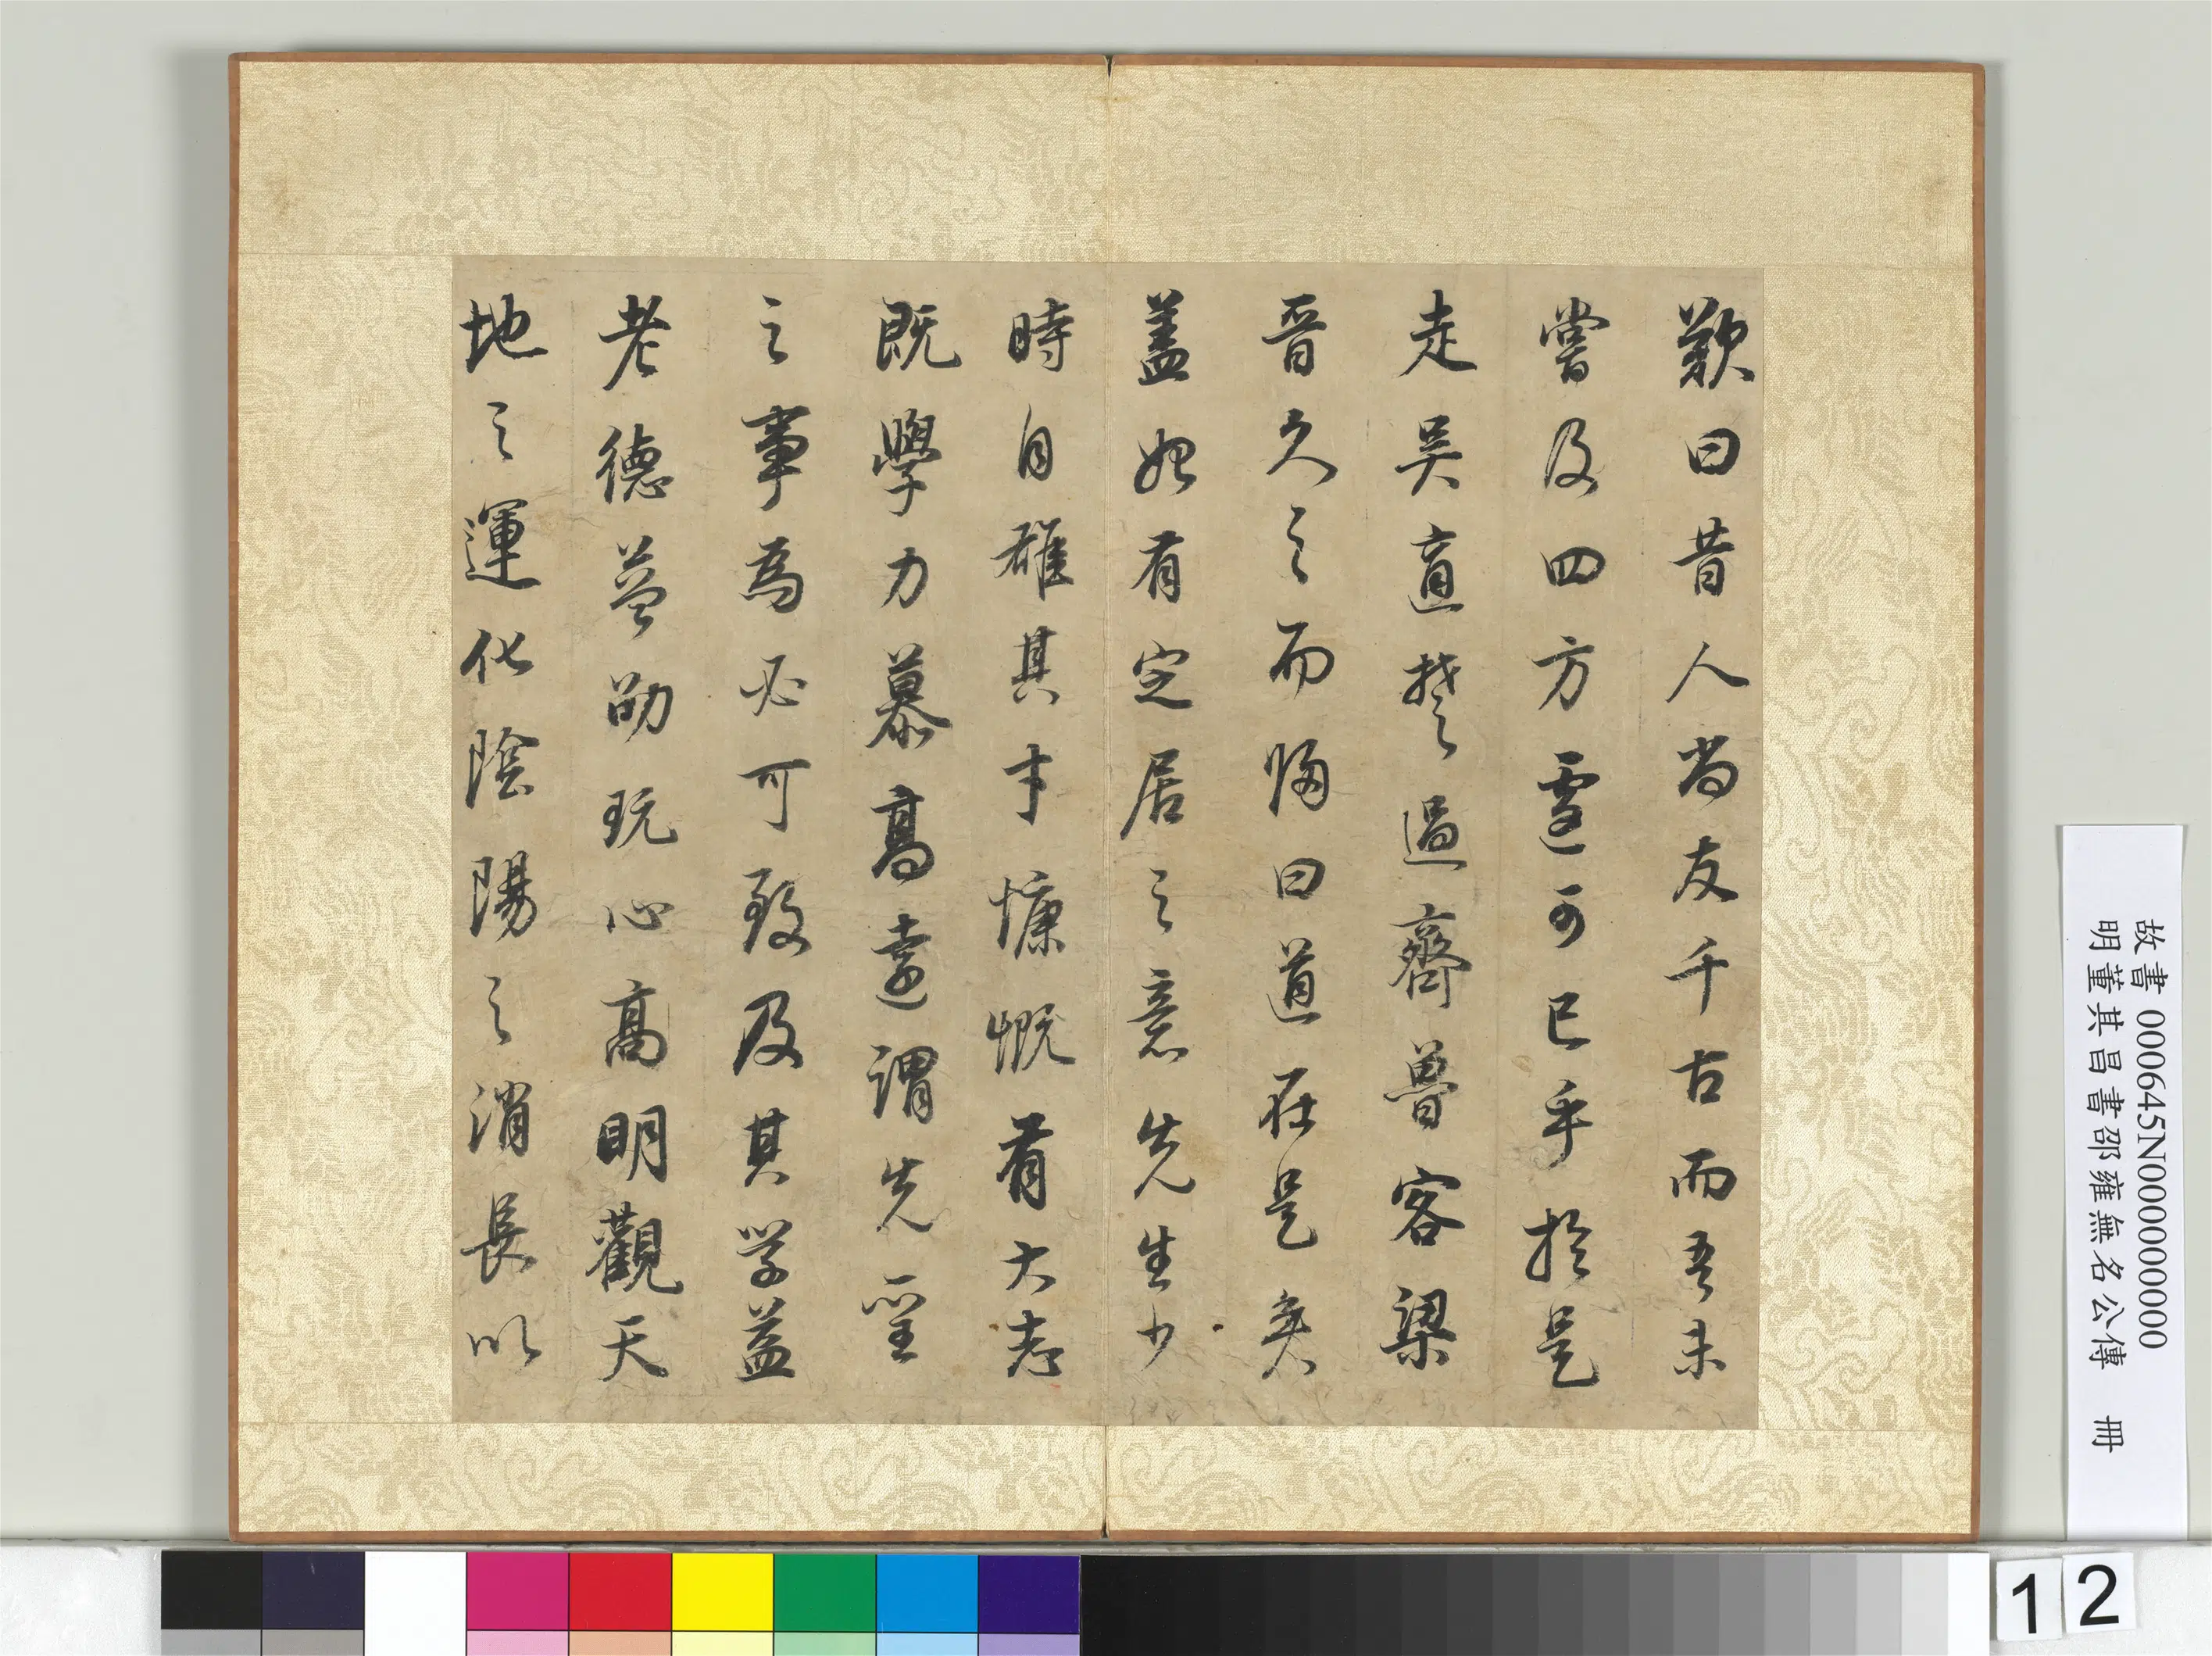 歎曰昔人尚友千古而吾未
嘗及四方遽可已乎於是
走吳適楚過齊魯客梁
晉久之而歸曰道在是矣
蓋始有定居之意先生少
時自雄其才慷慨有大志
既學力慕高遠謂先聖
之事為必可致及其學益
老德益邵玩心高明觀天
地之運化陰陽之消長以
故書 000645N000000000
明董其昌書邵雍無名公傳 冊
12